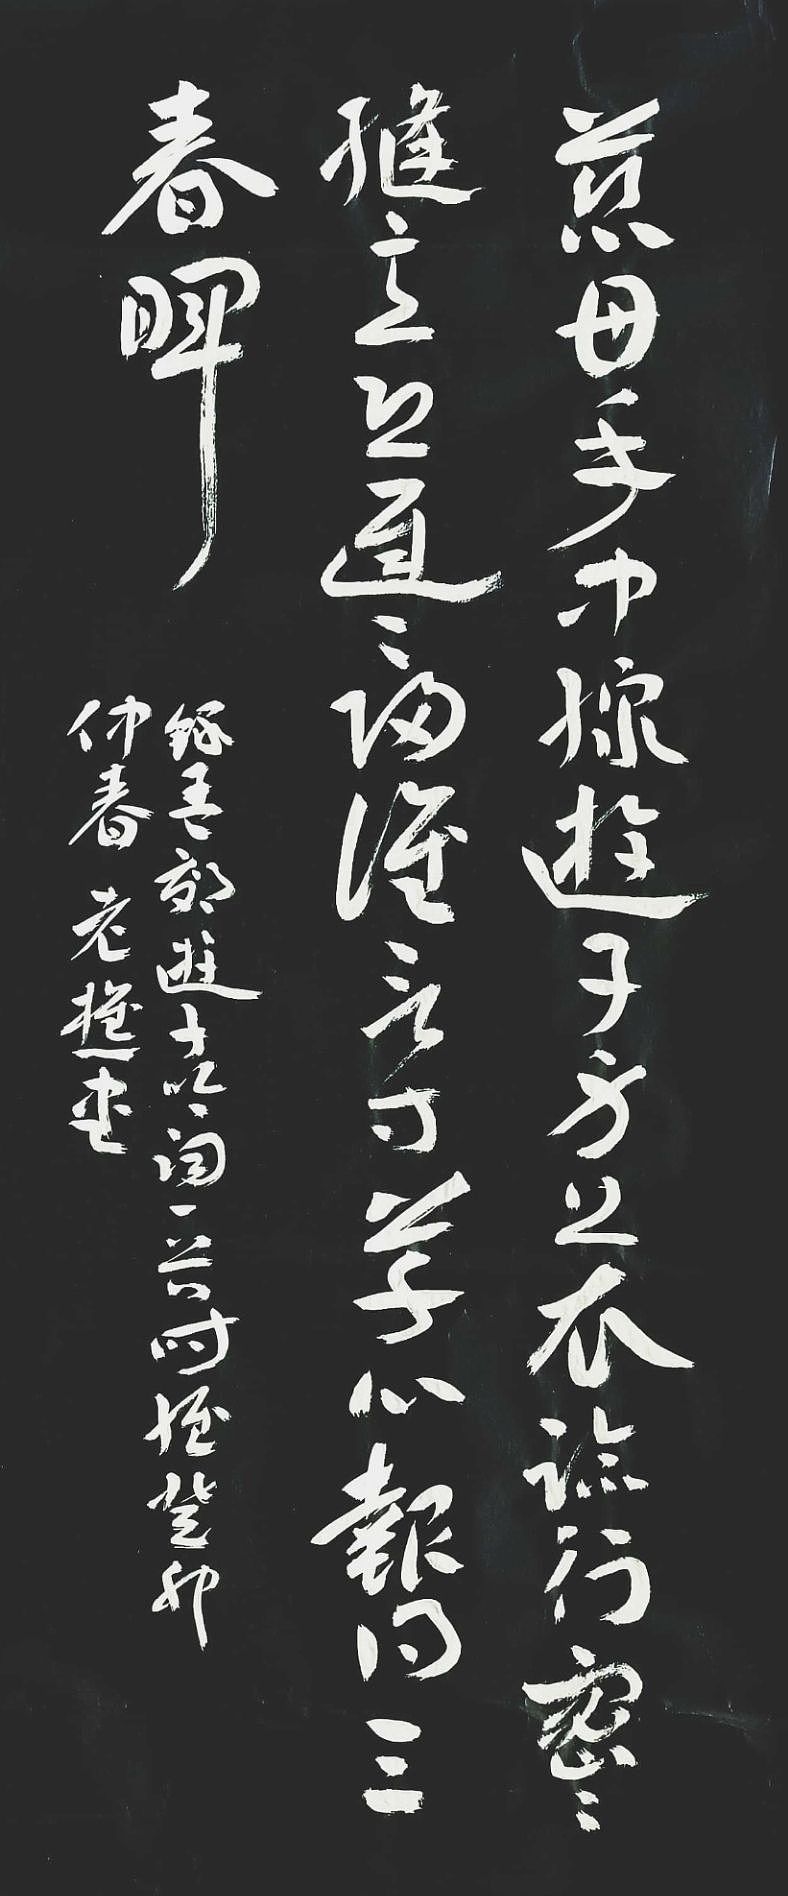 慈母手中線遊子身上衣臨行密〻
縫意恐遲〻歸誰言寸草心報得三
春暉
錄孟郊遊子吟詞一首時在癸卯
仲春老